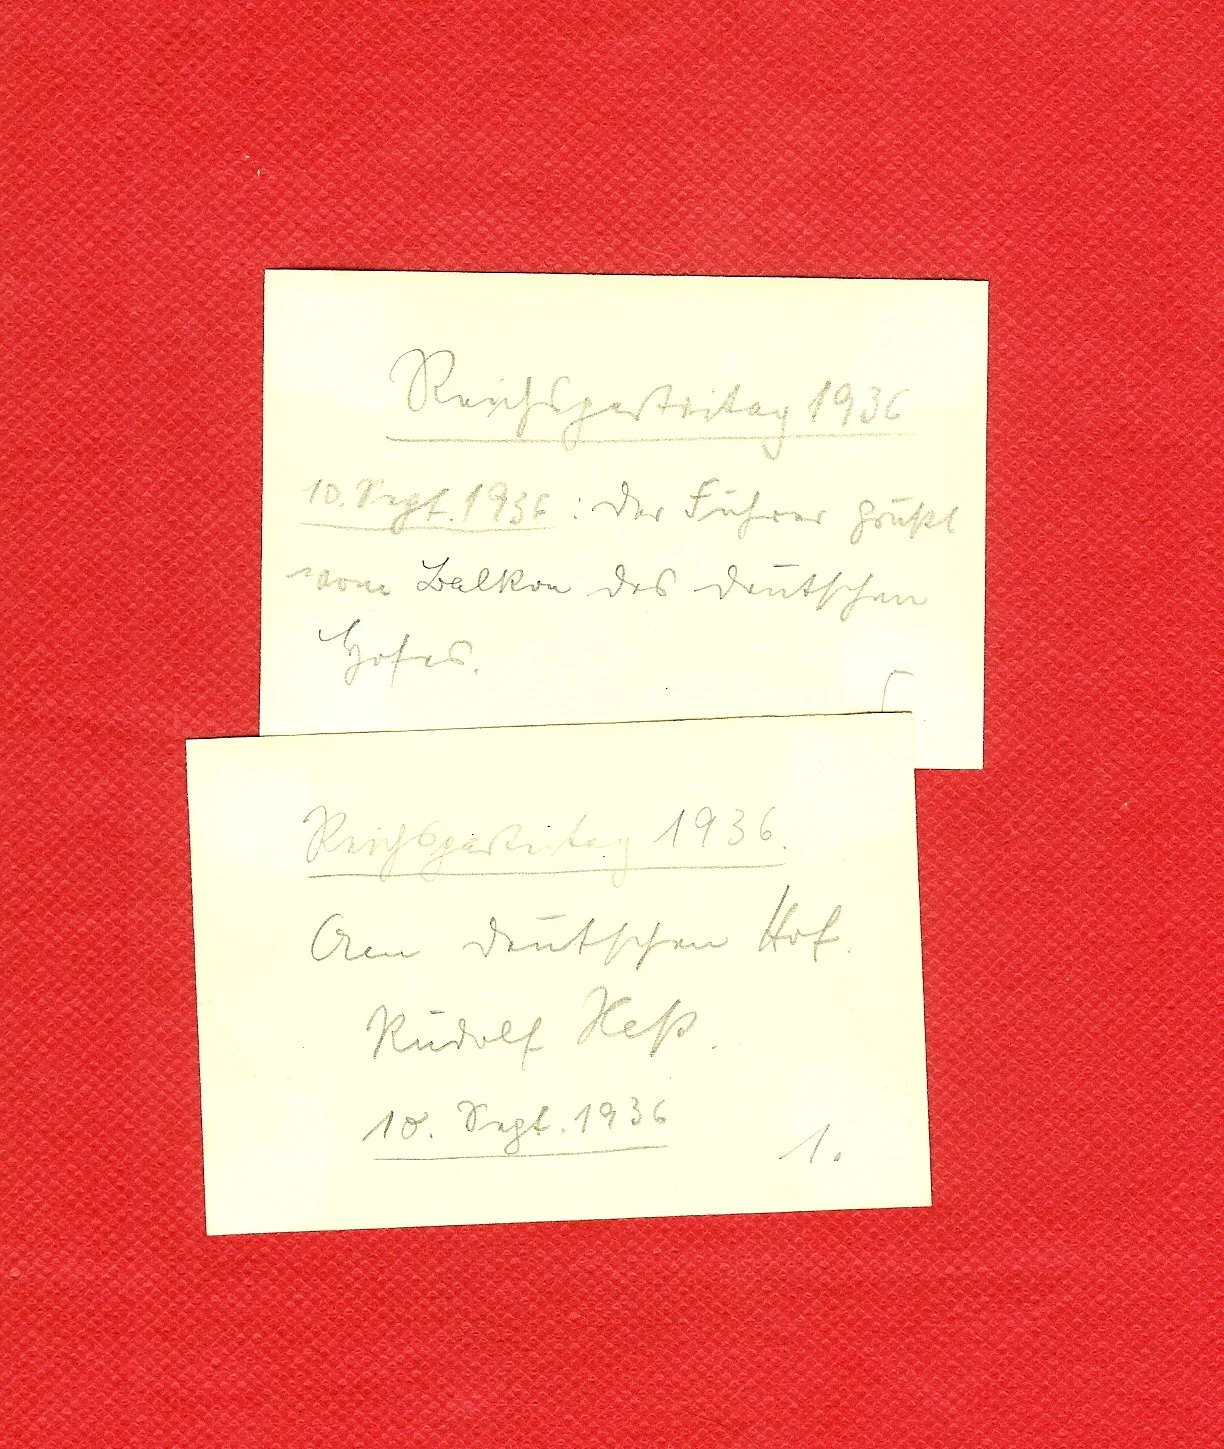 Reichsparteitag 1936
10. Sept. 1936 : Der Führer grüßt
vom Balkon des Deutschen
Hofes.
Reichsparteitag 1936.
Am Deutschen Hof.
Rudolf Heß.
10. Sept. 1936
1.